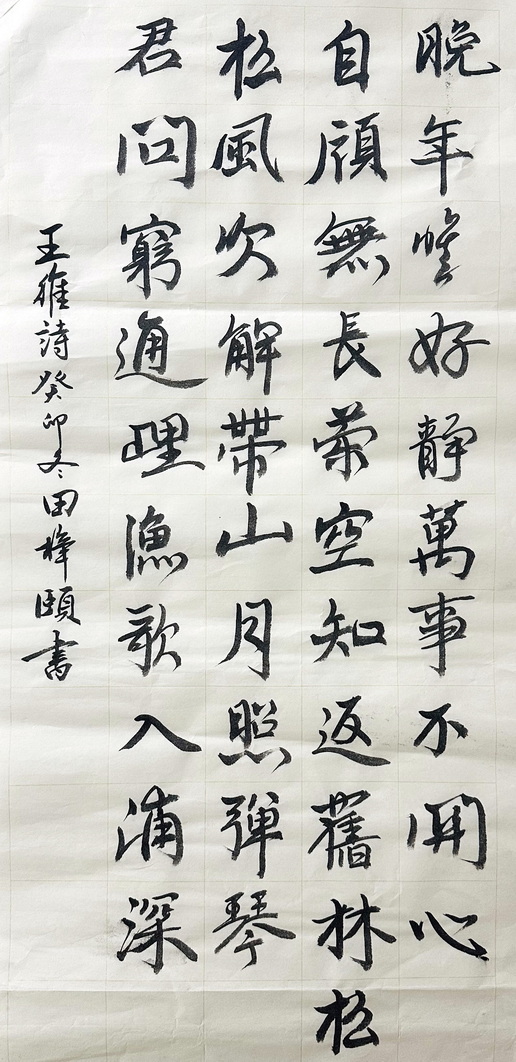 晚年唯好靜萬事不開心
自顧無長策空知返舊林松
松風吹解帶山月照彈琴
君問窮通理漁歌入浦深
王維詩癸卯冬田頤書